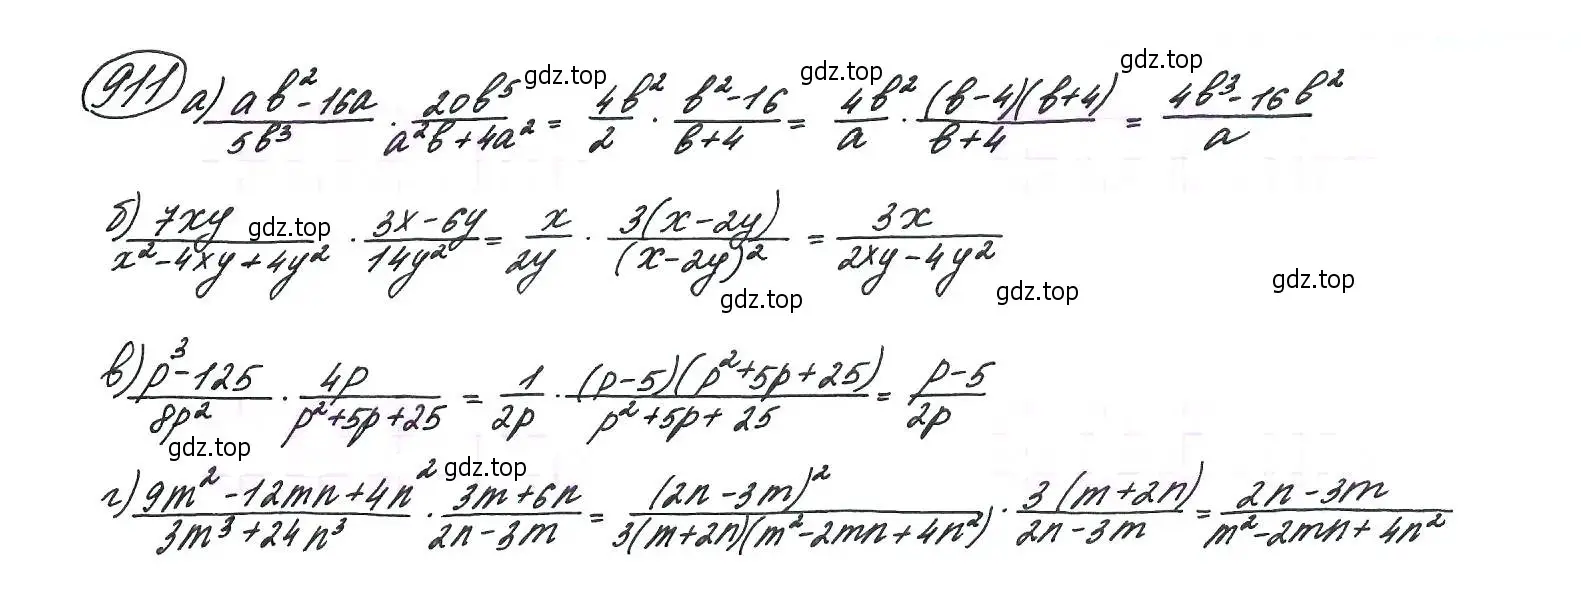 911 а) (ab² - 16a)/(5b³) · (20b⁵)/(a²b + 4a²) = (4b²)/2 · (b² - 16)/(b + 4) = (4b²)/a · ((b - 4)(b + 4))/(b + 4) = (4b³ - 16b²)/a
gdz.top gdz.top gdz.top
б) (7xy)/(x² - 4xy + 4y²) · (3x - 6y)/(14y²) = x/(2y) · (3(x - 2y))/((x - 2y)²) = (3x)/(2xy - 4y²)
gdz.top gdz.top gdz.top gdz.top
в) (p³ - 125)/(8p²) · (4p)/(p² + 5p + 25) = 1/(2p) · ((p - 5)(p² + 5p + 25))/(p² + 5p + 25) = (p - 5)/(2p)
gdz.top gdz.top
г) (9m² - 12mn + 4n²)/(3m³ + 24n³) · (3m + 6n)/(2n - 3m) = ((2n - 3m)²)/(3(m + 2n)(m² - 2mn + 4n²)) · (3(m + 2n))/(2n - 3m) = (2n - 3m)/(m² - 2mn + 4n²)